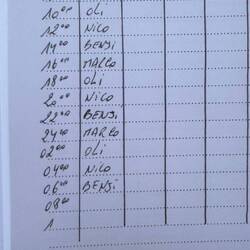 10⁰⁰ OLI
12⁰⁰ NICO
14⁰⁰ BENJI
16⁰⁰ MARCO
18⁰⁰ OLI
20⁰⁰ NICO
22⁰⁰ BENJI
24⁰⁰ MARCO
02⁰⁰ OLI
04⁰⁰ NICO
06⁰⁰ BENJI
08⁰⁰
1